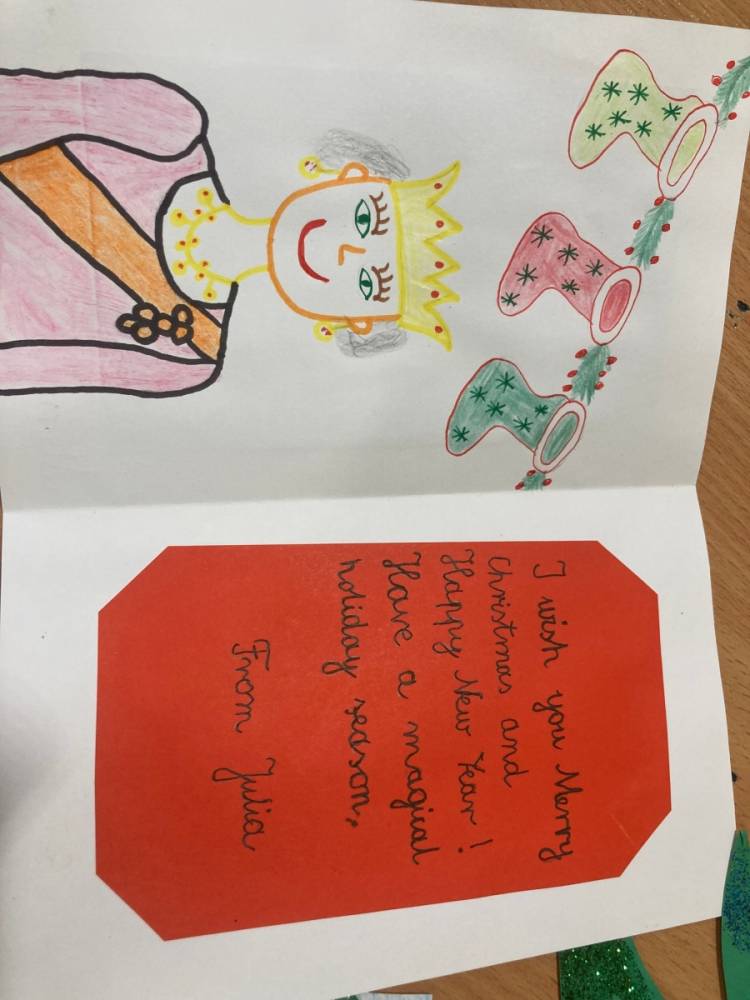 I wish you Merry
Christmas and
Happy New Year!
Have a magical
holiday season.
From Julia